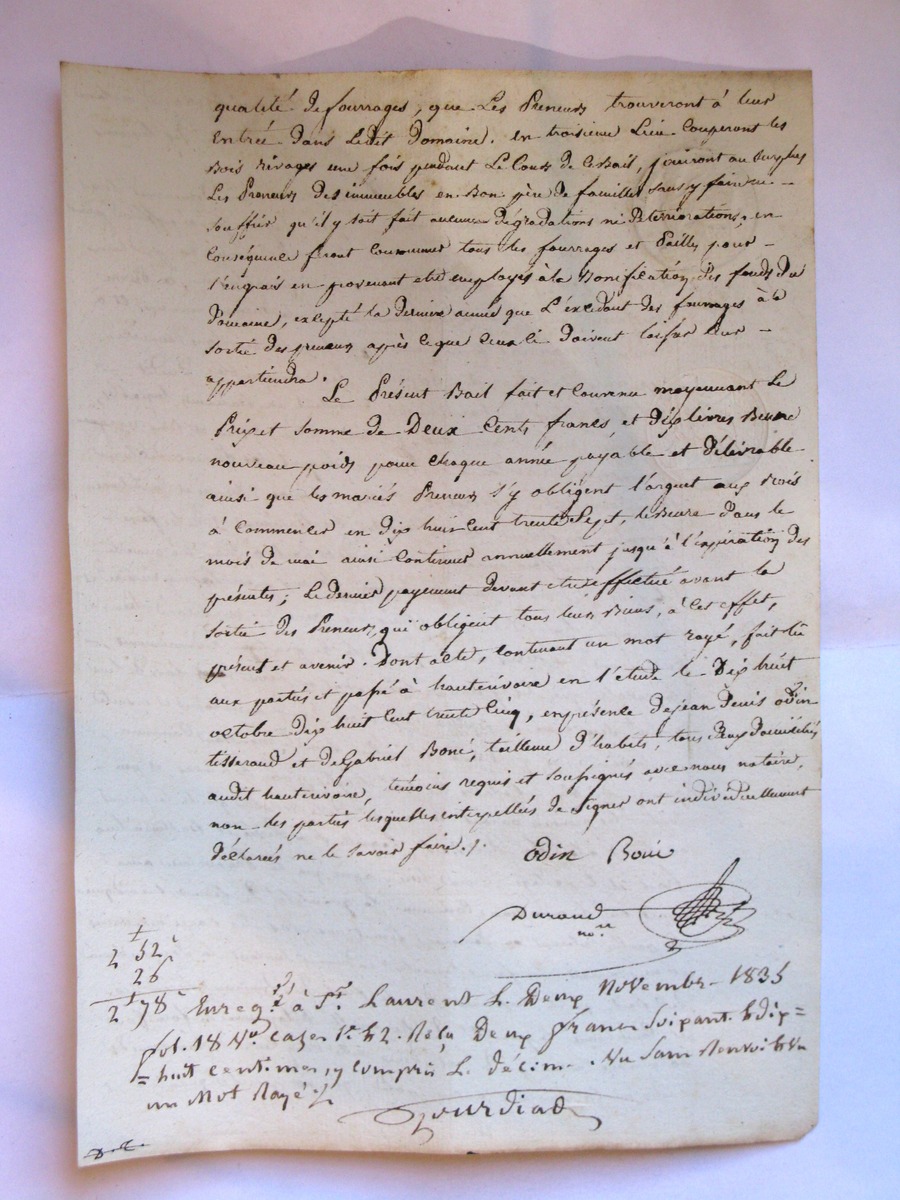 qualité de fourrages, que Les Preneurs trouveront à leur
Entrée Dans Ledit Domaine. en troisieme Lieu Couperont les
Bois Rivages une fois pendant Le Cours de ce Bail, jouiront au Surplus
Les Preneurs Des immeubles en Bon père de famille Sans y faire ni
Souffrir qu'il y soit fait aucunes Dégradations ni Déteriorations, en
Conséquence feront Consommer tous les fourrages et Pailles pour
l'engrais en provenant etre employés à la Bonification des fonds du
Domaine, excepté la Derniere année que L'éxcédant des fourrages à la
Sortie des preneurs après ce que Ceux ci Doivent laisser leur
appartiendra.
Le Présent Bail fait et Convenu moyennant Le
Prix et Somme de Deux Cents francs, et dix livres Beurre
nouveau poids pour chaque année payable et Délivrable
ainsi que les mariés Preneurs S'y obligent l'argent aux Rois
à Commencer en Dix huit Cent trente Sept, le Beurre Dans le
mois de mai ainsi Continuer annuellement jusqu'à l'expiration des
présentes; Le dernier payement devant etre effectué avant la
Sortie des Preneurs, qui obligent tous leurs Biens, à Cet effet,
présent et avenir. Dont acte, Contenant un mot rayé, fait lu
aux parties et passé à hauterivoire en l'étude le Dix huit
octobre Dix huit Cent trente Cinq, en présence de jean Denis odin
tisserand et de Gabriel Boué, tailleur D'habits, tous Deux Domiciliés
audit hauterivoire, témoins requis et Soussignés avec nous notaire,
non les parties lesquelles interpellées de Signer ont individuellement
Déclarées ne le Savoir faire./.
Odin Boué
Durand
nore
2 52
26
2 78
Enreg.é à St. Laurent L. Deux Novembre 1835
fol. 18 Vo. Cases 1. & 2. Reçu Deux francs Soixante & dix=
=huit Centimes, y Compris L. décime. Vu Sans Renvoi & Vu
un Mot Rayé./.